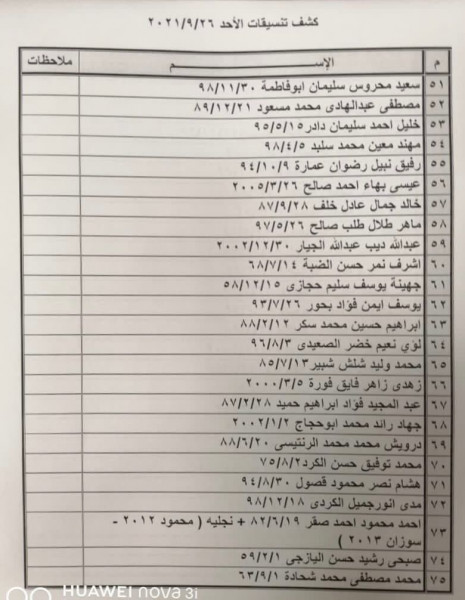 كشف تنسيقات الأحد ٢٠٢١/٩/٢٦
م الإســـــم ملاحظات
٥١ سعيد محروس سليمان ابوفاطمة ٩٨/١١/٣٠
٥٢ مصطفى عبدالهادى محمد مسعود ٨٩/١٢/٢١
٥٣ خليل احمد سليمان دادر ٩٥/٥/١٥
٥٤ مهند معين محمد سلبد ٩٨/٤/٥
٥٥ رفيق نبيل رضوان عمارة ٩٤/١٠/٩
٥٦ عيسى بهاء احمد صالح ٢٠٠٥/٣/٢٦
٥٧ خالد جمال عادل خلف ٨٧/٩/٢٨
٥٨ ماهر طلال طلب صالح ٩٧/٥/٢٦
٥٩ عبدالله ديب عبدالله الجيار ٢٠٠٢/١٢/٣٠
٦٠ اشرف نمر حسن الضبة ٦٨/٧/١٤
٦١ جهينة يوسف سليم حجازى ٥٨/١٢/١٥
٦٢ يوسف ايمن فؤاد بحور ٩٣/٧/٢٦
٦٣ ابراهيم حسين محمد سكر ٨٨/٢/١٢
٦٤ لؤي نعيم خضر الصعيدى ٩٦/٨/٣
٦٥ محمد وليد شلش شبير ٨٥/٧/١٣
٦٦ زهدى زاهر فايق فورة ٢٠٠٠/٣/٥
٦٧ عبد المجيد فؤاد ابراهيم حميد ٨٧/٢/٢٨
٦٨ جهاد رائد محمد ابوحجاج ٢٠٠٢/١/٢
٦٩ درويش محمد محمد الرنتيسى ٨٨/٦/٢٠
٧٠ محمد توفيق حسن الكرد ٧٥/٨/٢
٧١ هشام نصر محمود قصول ٩٤/٨/٣٠
٧٢ مدى انورجميل الكردى ٩٨/١٢/١٨
٧٣ احمد محمود احمد صقر ٨٢/٦/١٩ + نجليه ( محمود ٢٠١٢ -
سوزان ٢٠١٣ )
٧٤ صبحى رشيد حسن اليازجى ٥٩/٢/١
٧٥ محمد مصطفى محمد شحادة ٦٣/٩/١
HUAWEI nova 3i